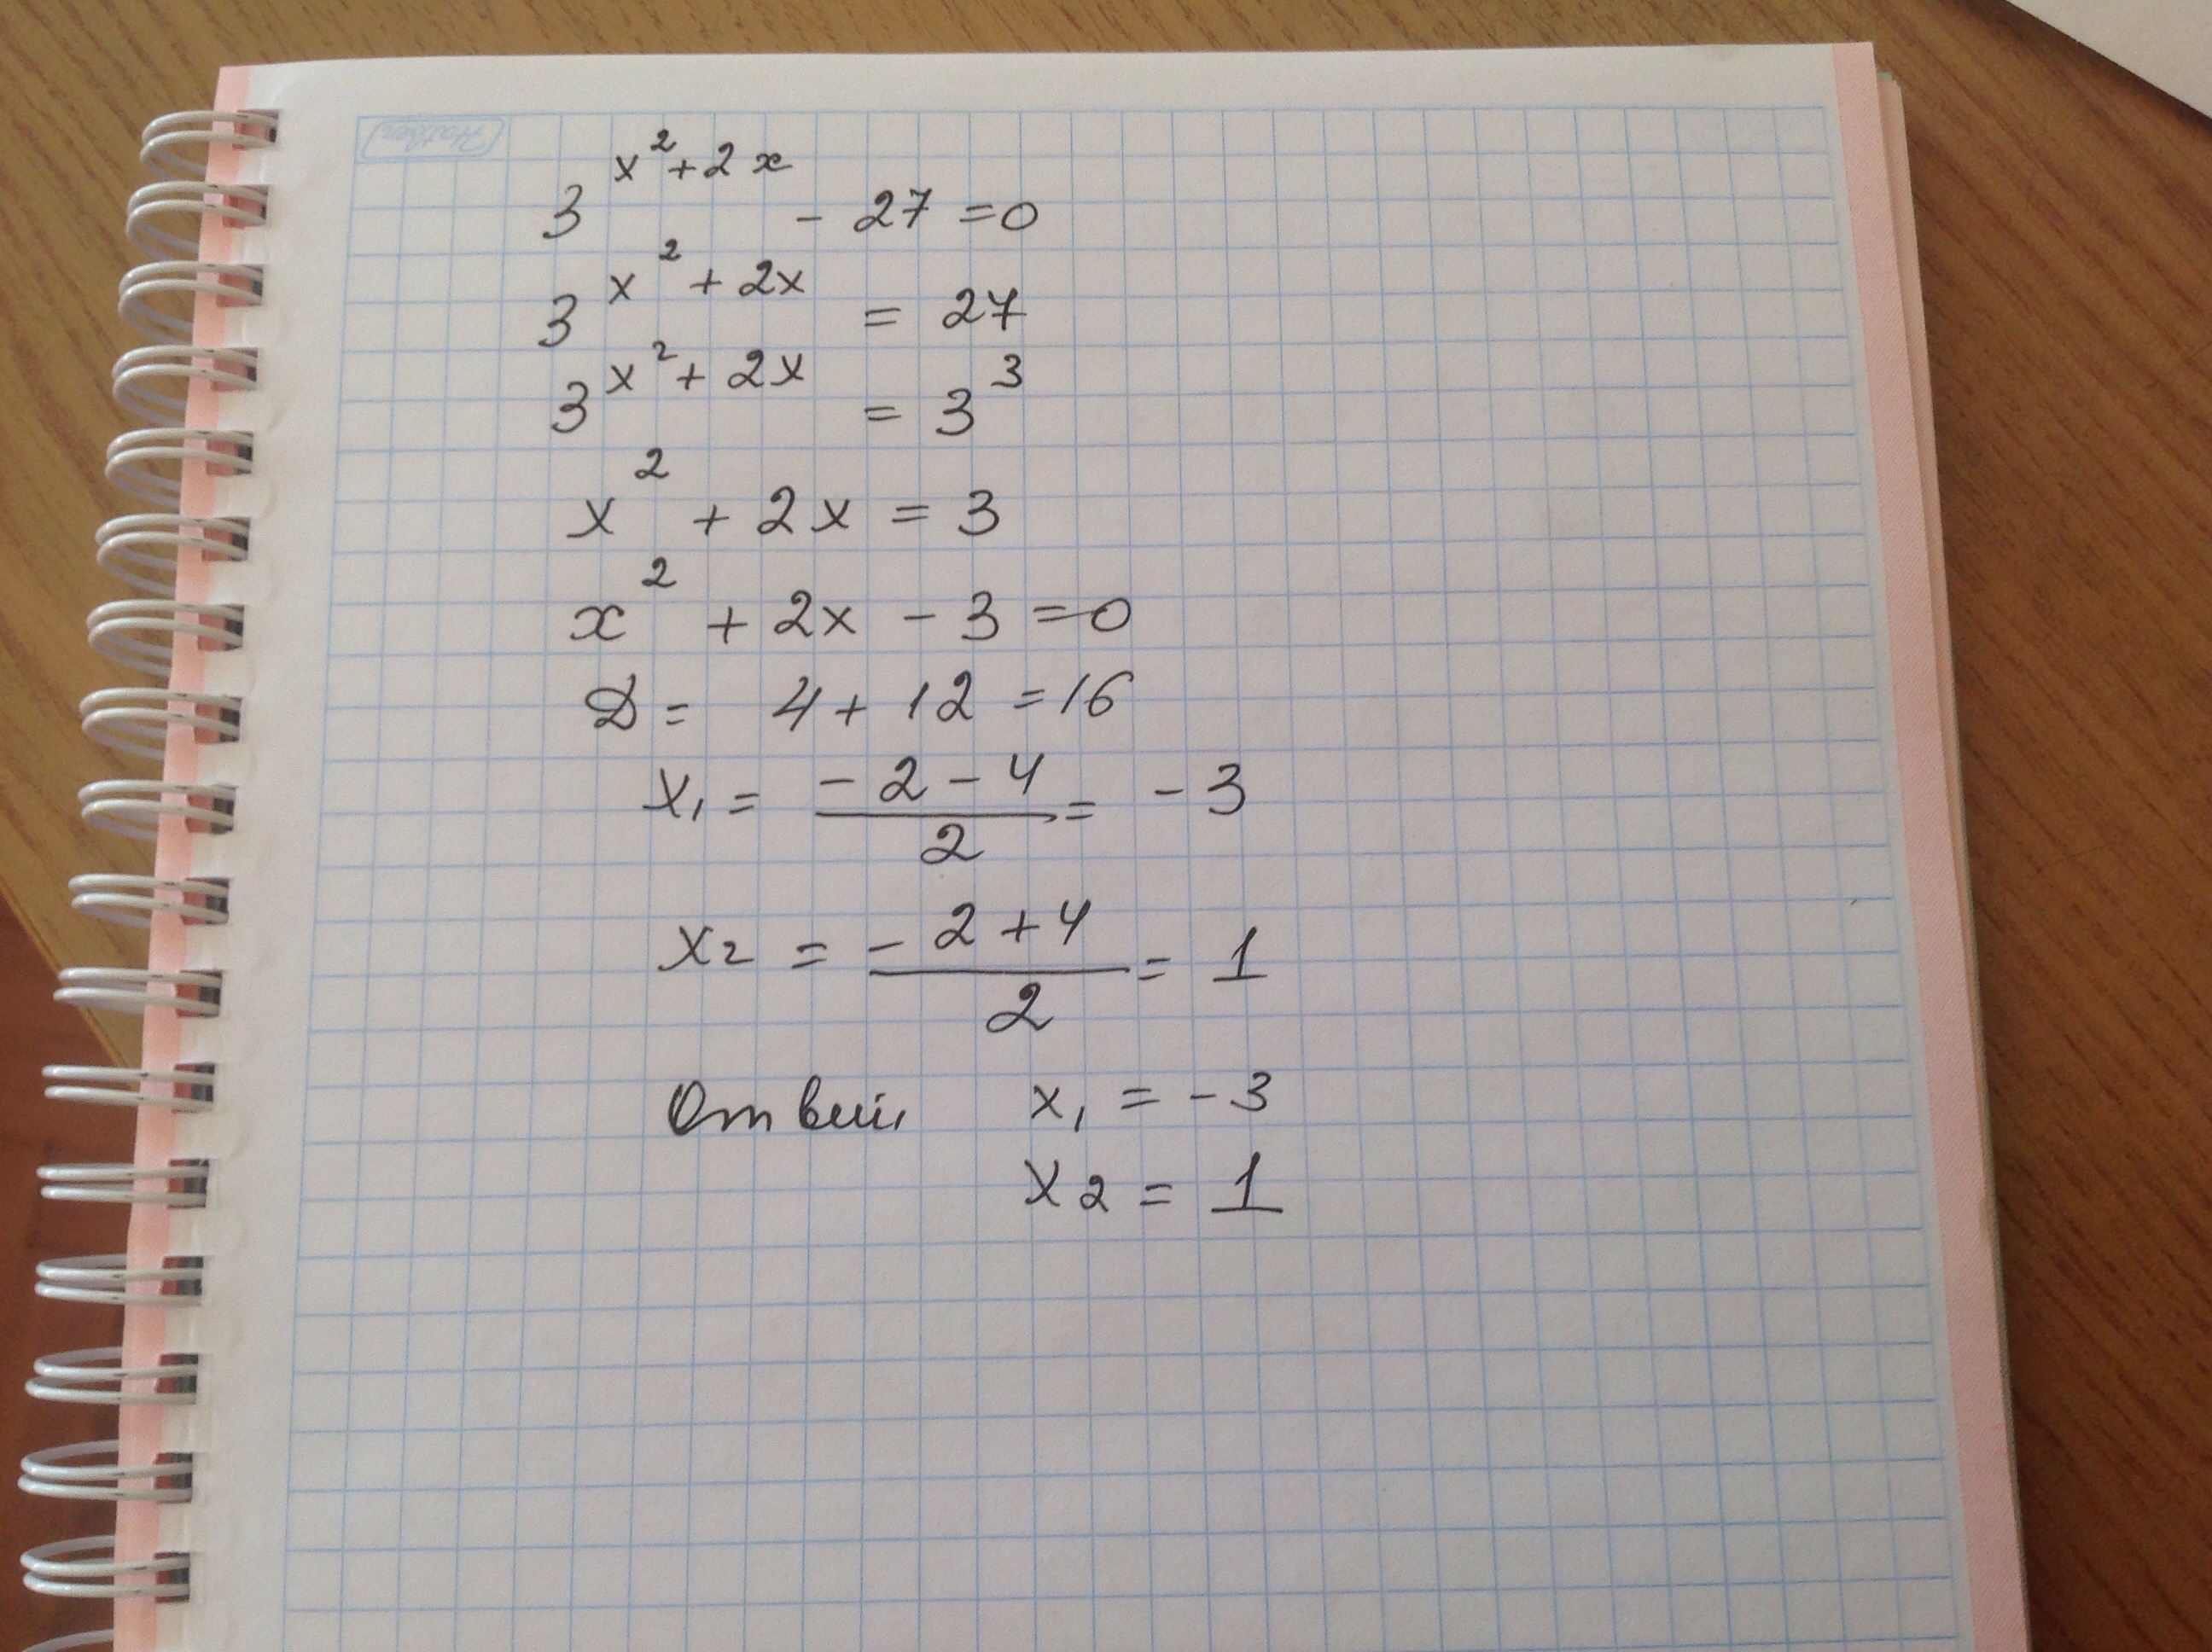 3^(x²+2x) - 27 = 0
3^(x²+2x) = 27
3^(x²+2x) = 3³
x² + 2x = 3
x² + 2x - 3 = 0
D = 4 + 12 = 16
x₁ = (-2-4)/2 = -3
x₂ = (-2+4)/2 = 1
Ответ: x₁ = -3
x₂ = 1